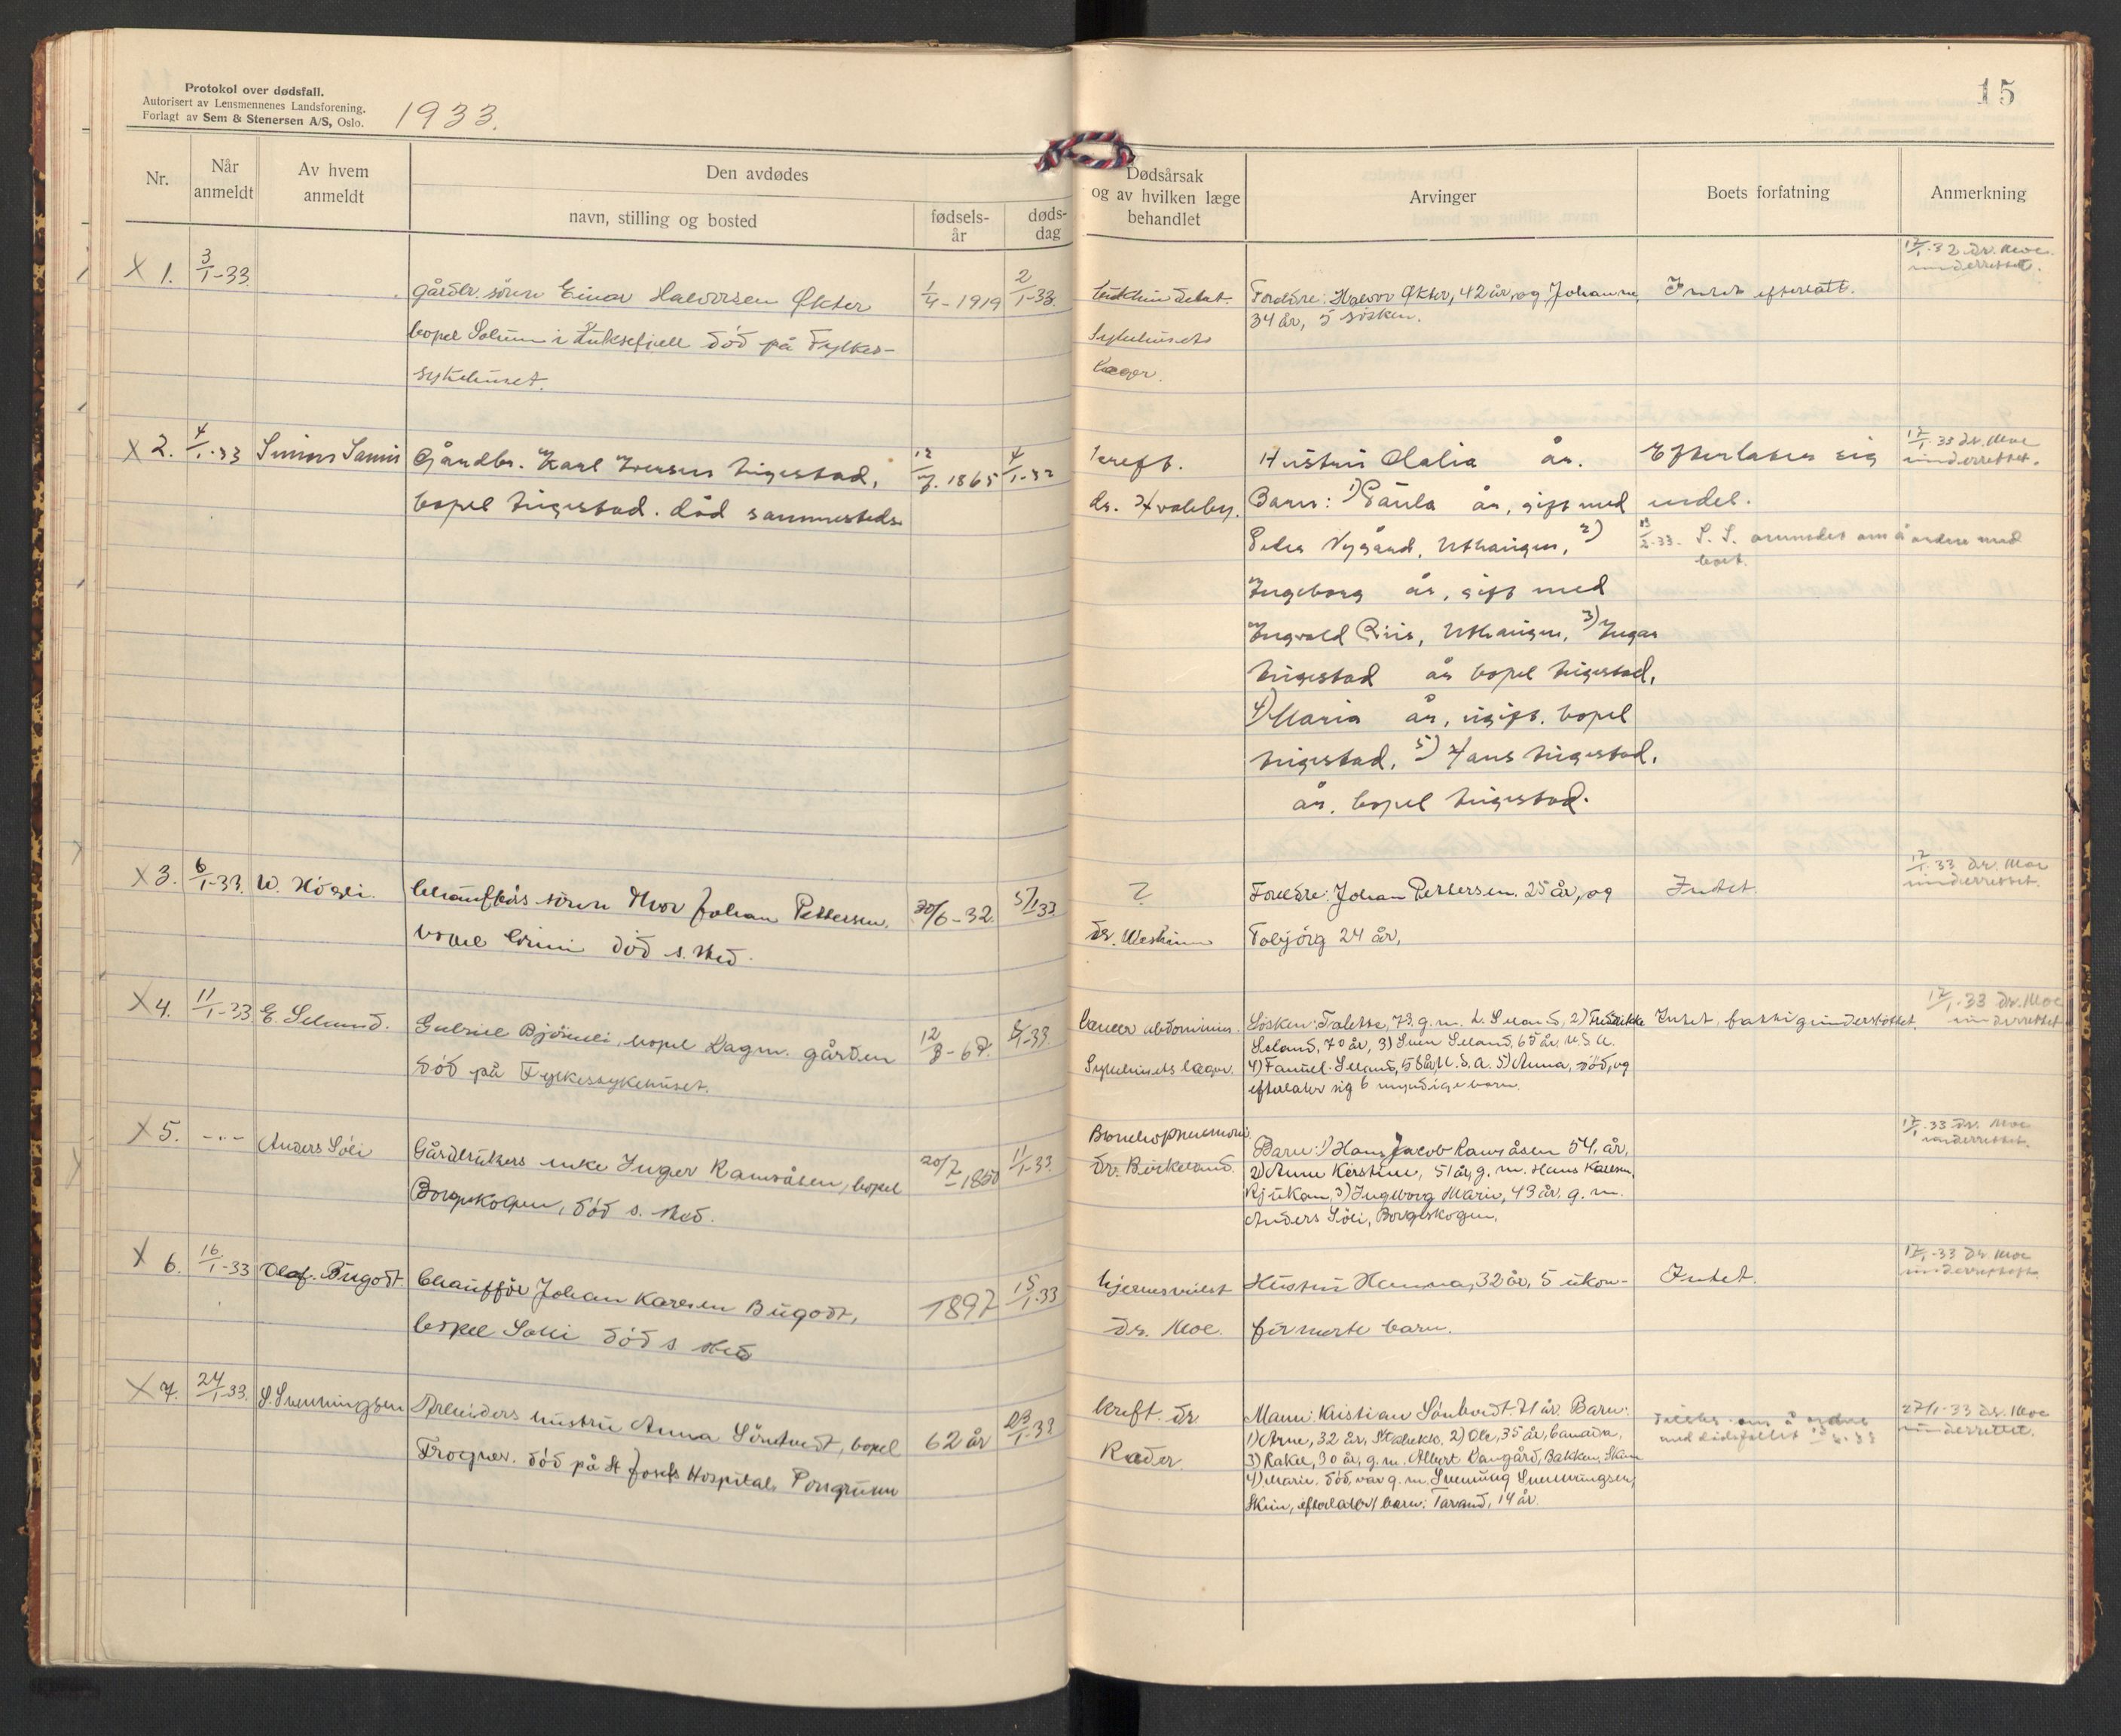 Protokol over dødsfall.
Autorisert av Lensmennenes Landsforening.
Forlagt av Sem & Stenersen A/S, Oslo.
1933.
15
Nr.
Når anmeldt
Av hvem anmeldt
Den avdødes
navn, stilling og bosted
fødsels-år
døds-dag
Dødsårsak og av hvilken læge behandlet
Arvinger
Boets forfatning
Anmerkning
X 1. 3/1-33
gårdbr. sönn Einar Halvorsen Økter
bopel Solum i Luksefjell död på Fylkes-
sykehuset.
1/4-1919
2/1-33.
Sykehusets
læger.
Foreldre: Halvor Økter, 42 år, og Johanne,
34 år, 5 sösken.
Intet efterlatt.
17/1-32 dr. Moe
underrettet.
X 2. 4/1-33
Gårdbr. Karl Iversen
bopel död sammesteds.
12/7. 1865
4/1-33
kreft.
dr. Hvaleby.
Hustru Olalia år.
Barn: 1) Paula år, gift med
Peder Nygård, 2)
Ingeborg år, gift med
Ingvald Riis, 3) Ingar
år bopel
4) Maria år, ugift. bopel
5) Hans
år. bopel
Efterlater sig
endel.
13/2-33. S. S. anmodet om å ordne med
boet.
17/1-33 dr. Moe
underrettet.
X 3. 6/1-33. W. Högli.
Chaufförs sönn Thor Johan Pettersen,
bopel död s. sted.
30/6-32.
5/1 33
?
dr.
Foreldre: Johan Pettersen. 25 år, og
Tobjörg 24 år,
Intet.
17/1-33 dr. Moe
underrettet.
X 4. 11/1-33 E. Seland.
Gabriel bopel Dagm. gården
död på Fylkessykehuset.
12/8-67.
/1-33.
Cancer abdominis.
Sykehusets læger.
Sösken: Talette, 73. g. m. L. Seland, 2) Fredrikke
Seland, 70 år, 3) Sven Seland, 65 år. U.S.A.
4) Fanuel Seland, 58 år, U.S.A. 5) Anna, död, og
efterlater sig 6 myndige barn.
Intet, fattigunderstöttet,
17/1-33 dr. Moe
underrettet
X 5. -"- Anders Söli
Gårdbrukers enke Inger Ramsåsen, bopel
Borgeskogen, död s. sted.
20/7-1850
11/1-33.
Bronchopneumoni.
Dr. Birkeland.
Barn: 1) Hans Jacob Ramsåsen 54. år,
2) Anne Kirstine, 51 år, g. m. Hans Karlsen,
Rjukan, 3) Ingeborg Marie, 43 år, g. m.
Anders Söli, Borgeskogen.
17/1-33 dr. Moe
underrettet.
X 6. 16/1-33 Olaf. Bugodt.
Chaufför Johan Karlsen Bugodt,
bopel Solli död s sted
1897
15/1-33
hjernesvulst
Dr. Moe.
Hustru Hanna, 32 år, 5 ukon-
firmerte barn.
Intet.
17/1-33 dr. Moe
underrettet.
X 7. 24/1-33. S. Svenningsen
Arbeiders hustru Anna Söntvedt, bopel
Frogner. död på St Josefs Hospital Porsgrunn
62 år
23/1-33
kreft. dr
Røder.
Mann: Kristian Söntvedt. 71 år. Barn:
1) Arne, 32 år, 2) Ole, 35 år, Canada,
3) Rakel, 30 år, g. m. Albert Vangård, Bakken, Skien
4) Marie. död, var g. m. Svenning Svenningsen,
Skien, efterlatt 1 barn: Tarand, 14 år.
om å ordne
med dödsfallet
27/1-33 dr. Moe
underrettet.